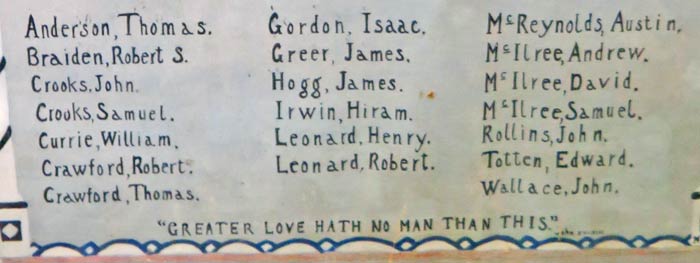 Anderson, Thomas.
Braiden, Robert S.
Crooks, John.
Crooks, Samuel.
Currie, William.
Crawford, Robert.
Crawford, Thomas.
Gordon, Isaac.
Greer, James.
Hogg, James.
Irwin, Hiram.
Leonard, Henry.
Leonard, Robert.
McReynolds, Austin.
McIlree, Andrew.
McIlree, David.
McIlree, Samuel.
Rollins, John.
Totten, Edward.
Wallace, John.
"GREATER LOVE HATH NO MAN THAN THIS."